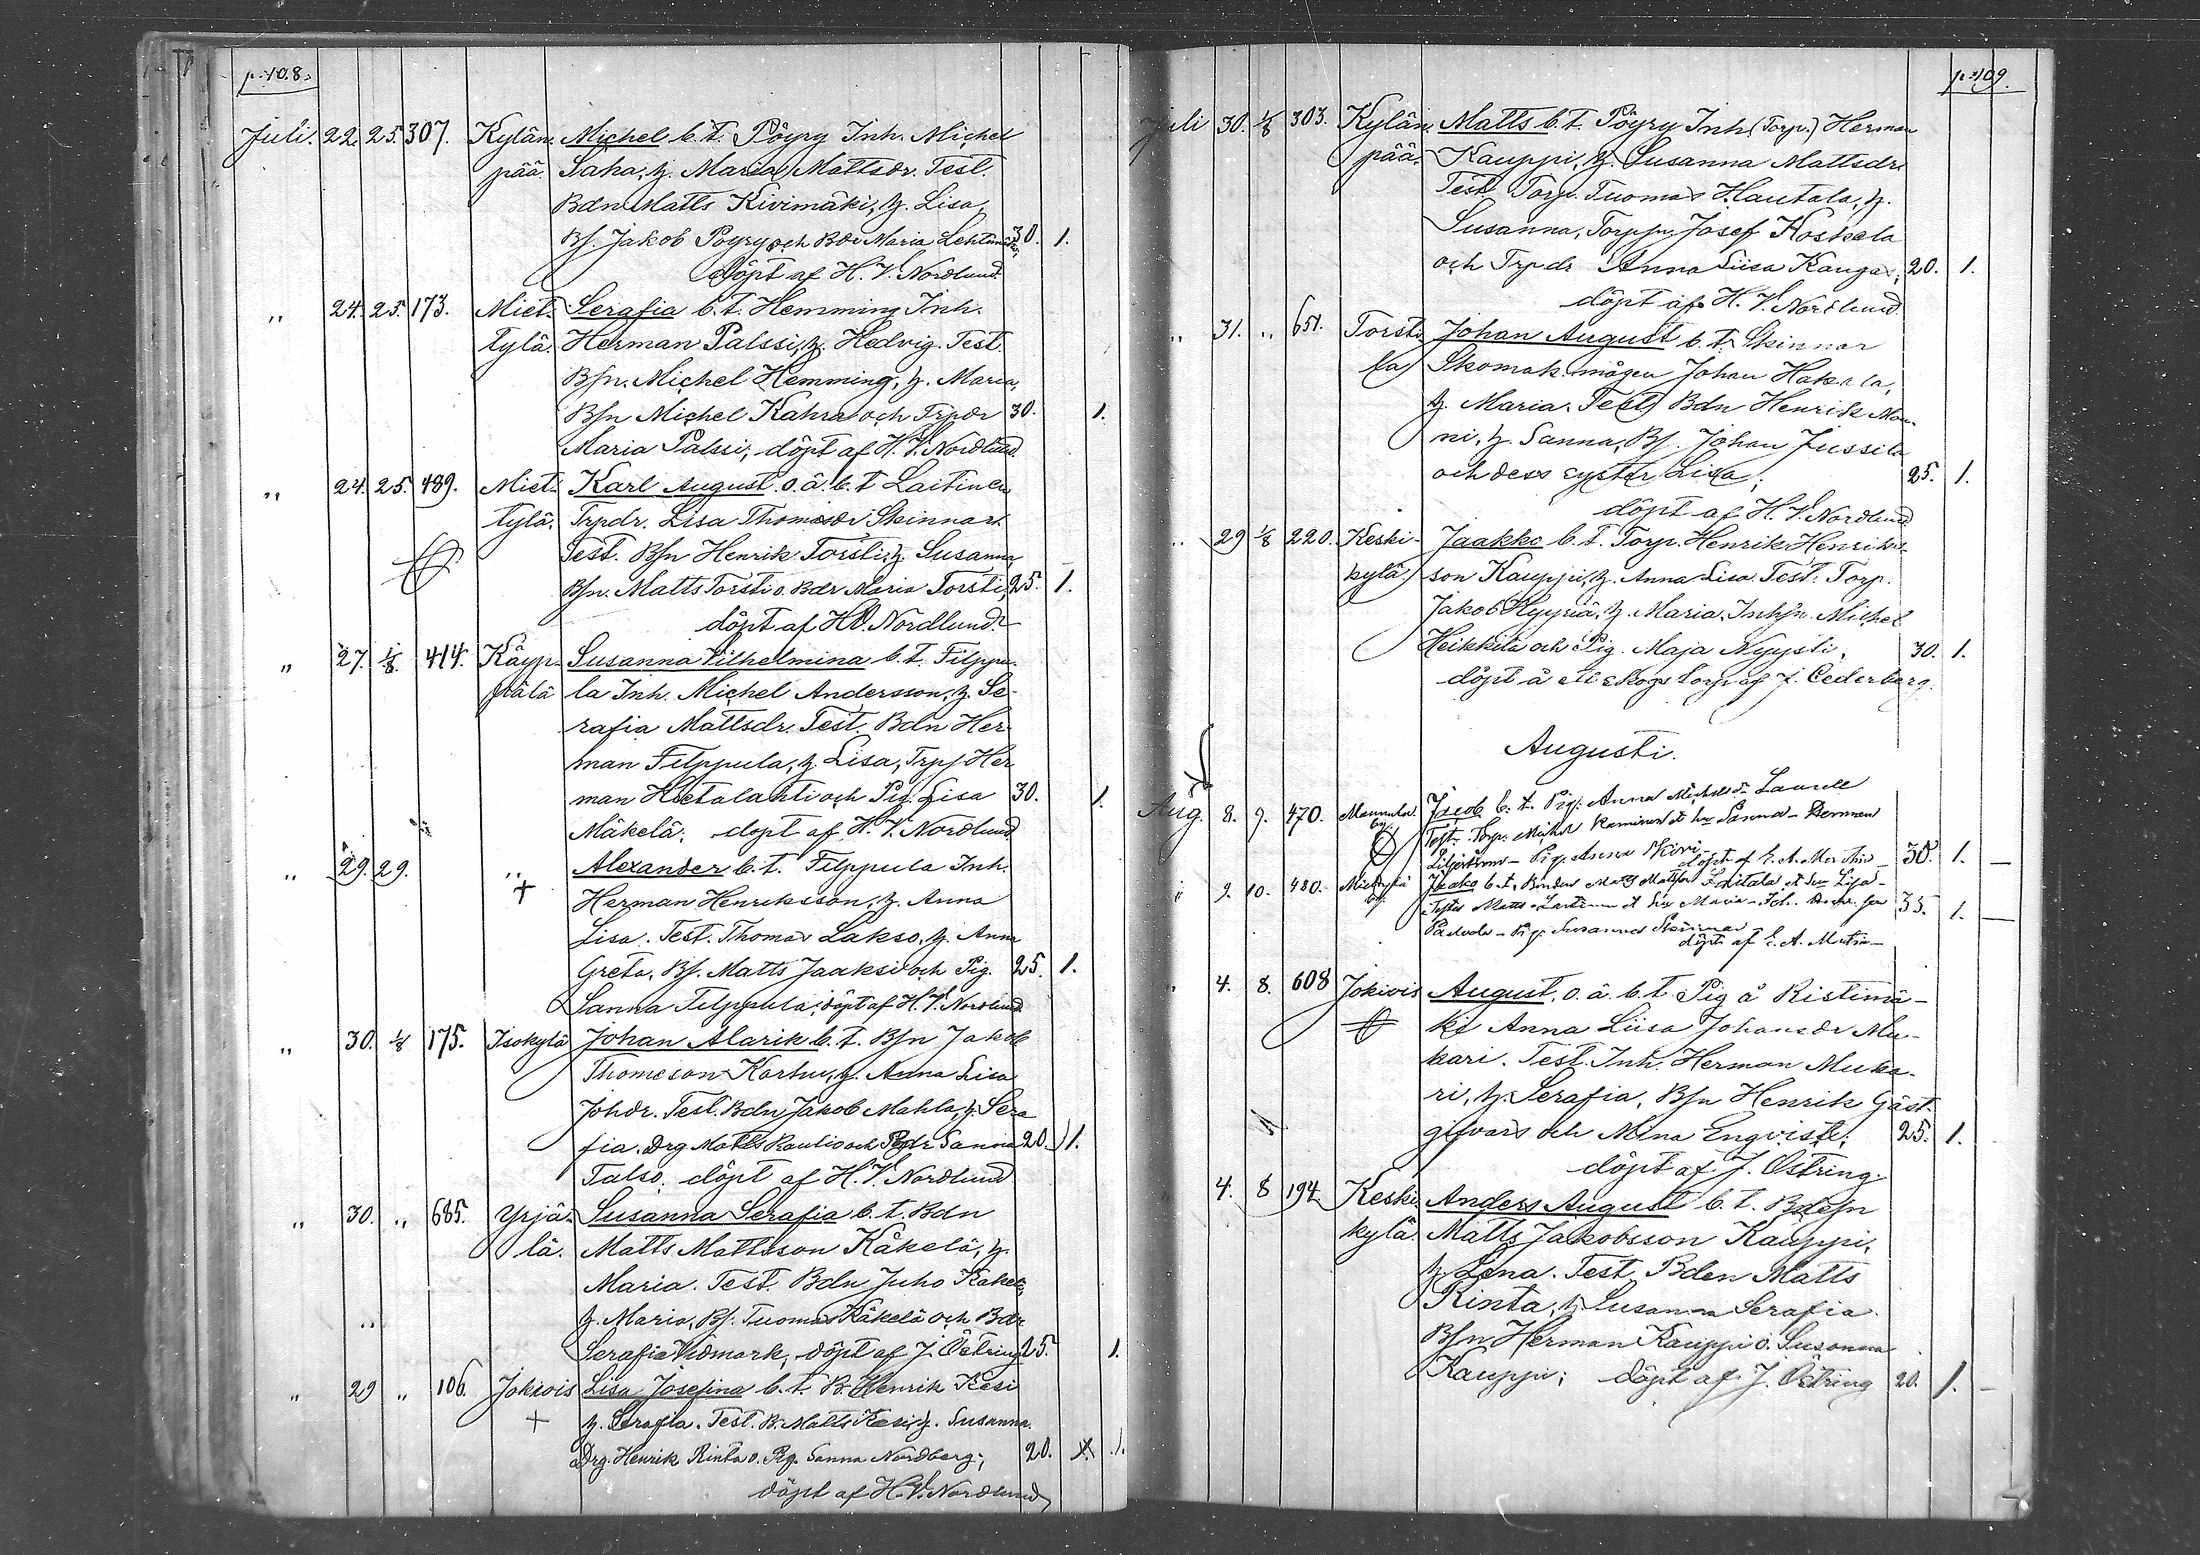 p. 108.
Juli. 22. 25. 307. Kylän- Michel b. t. Pöyry Inh. Michel
pää. Saha, h. Maria Mattsdr. Test.
Bdn Matts Kivimäki, h. Lisa,
Bs. Jakob Pöyry och Bdr Maria Lehtimäki; 30. 1.
döpt af H. V. Nordlund.
" 24. 25. 173. Miet- Serafia b. t. Hemming Inh.
tylä. Herman Palssi, h. Hedvig. Test.
Bsn. Michel Hemming, h. Maria,
Bsn Michel Kahra och Trpdr 30. 1.
Maria Palssi; döpt af H. V. Nordlund.
" 24. 25. 489. Miet- Karl August o. ä. b. t. Laitinen
tylä. Trpdr. Lisa Thomasdr Skinnar.
Test. Bsn Henrik Torsti, h. Susanna,
Bsn. Matts Torsti o. Bdr Maria Torsti; 25. 1.
döpt af H. V. Nordlund.
" 27. 1/8 414. Käyp- Susanna Vilhelmina b. t. Filppu-
pälä la Inh. Michel Andersson, h. Se-
rafia Mattsdr. Test. Bdn Her-
man Filppula, h. Lisa, Trps Her
man Hietalahti och Pig. Lisa 30. 1.
Mäkelä; döpt af H. V. Nordlund.
" 29. 29. " Alexander b. t. Filppula Inh.
+ Herman Henriksson, h. Anna
Lisa. Test. Thomas Lakso, h. Anna
Greta, Bs. Matts Jaaksi och Pig. 25. 1.
Sanna Filppula; döpt af H. V. Nordlund
" 30. 1/8 175. Isokylä Johan Alarik b. t. Bsn Jakob
Thomeson Korhu, h. Anna Lisa
Johdr. Test. Bdn Jakob Mahla, h. Sera
fia. Drg Matts Rautio och Bdr Sanna 20. 1.
Talso. döpt af H. V. Nordlund
" 30. " 685. Yrjä- Susanna Serafia b. t. Bdn
lä. Matts Mattsson Käkelä, h.
Maria. Test. Bdn Juho Käkelä,
h. Maria, Bs. Tuomas Käkelä och Bdr
Serafia Vidmark; döpt af J. Östring 25. 1.
" 29 " 106. Jokivis Lisa Josefina b. t. B. Henrik Kesi
+ h. Serafia. Test. B. Matts Kesi, h. Susanna.
Drg. Henrik Rinta o. Pig. Sanna Nordberg; 20. 1.
döpt af H. V. Nordlund
p. 109.
Juli 30. 1/8 303. Kylän- Matts b. t. Pöyry Inh (Torp.) Herman
pää. Kauppi, h. Susanna Mattsdr.
Test. Torp. Tuomas Hautala, h.
Susanna, Torpsn. Josef Koskela
och Trpdr Anna Liisa Kangas; 20. 1.
döpt af H. V. Nordlund.
" 31. " 651. Torsti- Johan August b. t. Skinnar
la Skomak. mågen Johan Hakala,
h. Maria. Test. Bdn Henrik Man-
ni, h. Sanna, Bs. Johan Jussila
och dess syster Lisa; 25. 1.
döpt af H. V. Nordlund
" 29 1/8 220. Keski- Jaakko b. t. Torp. Henrik Henriks-
kylä. son Kauppi, h. Anna Lisa. Test. Torp.
Jakob Hyyriä, h. Maria, Inhsn. Michel
Heikkilä och Pig. Maja Nyysti, 30. 1.
döpt å Skogs torp af J. Cederberg.
Augusti.
Aug. 8. 9. 470. Mannula Jacob b. t. Pig. Anna Michelsdr
by. Test. Torp. Michel h. Sanna - Herman
Pig. Anna Kivi - döpt af 30. 1. —
" 9. 10. 480. Mietylä Jaako b. t. Bonden Matts Mattson h. Lisa -
by. Testes Matts Maria - 35. 1. —
Pig. Susanna
döpt af E. A.
" 4. 8. 608 Jokivis August, o. ä. b. t. Pig å Ristimä-
ki Anna Liisa Johansdr Mu-
kari. Test. Inh. Herman Muka-
ri, h. Serafia, Bsn Henrik Gäst-
gifvars och Mina Engvist; 25. 1.
döpt af J. Östring.
4. 8 194 Keski- Anders August b. t. Bdesn
kylä. Matts Jakobsson Kauppi,
h. Lena. Test. Bden Matts
Rinta, h. Susanna Serafia.
Bsn Herman Kauppi o. Susanna
Kauppi; döpt af J. Östring 20. 1. —